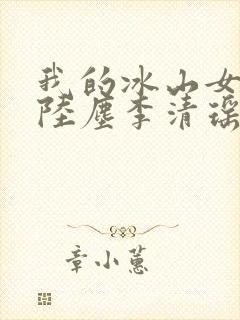 我的冰山女
陸塵李清瑶
章小蕙